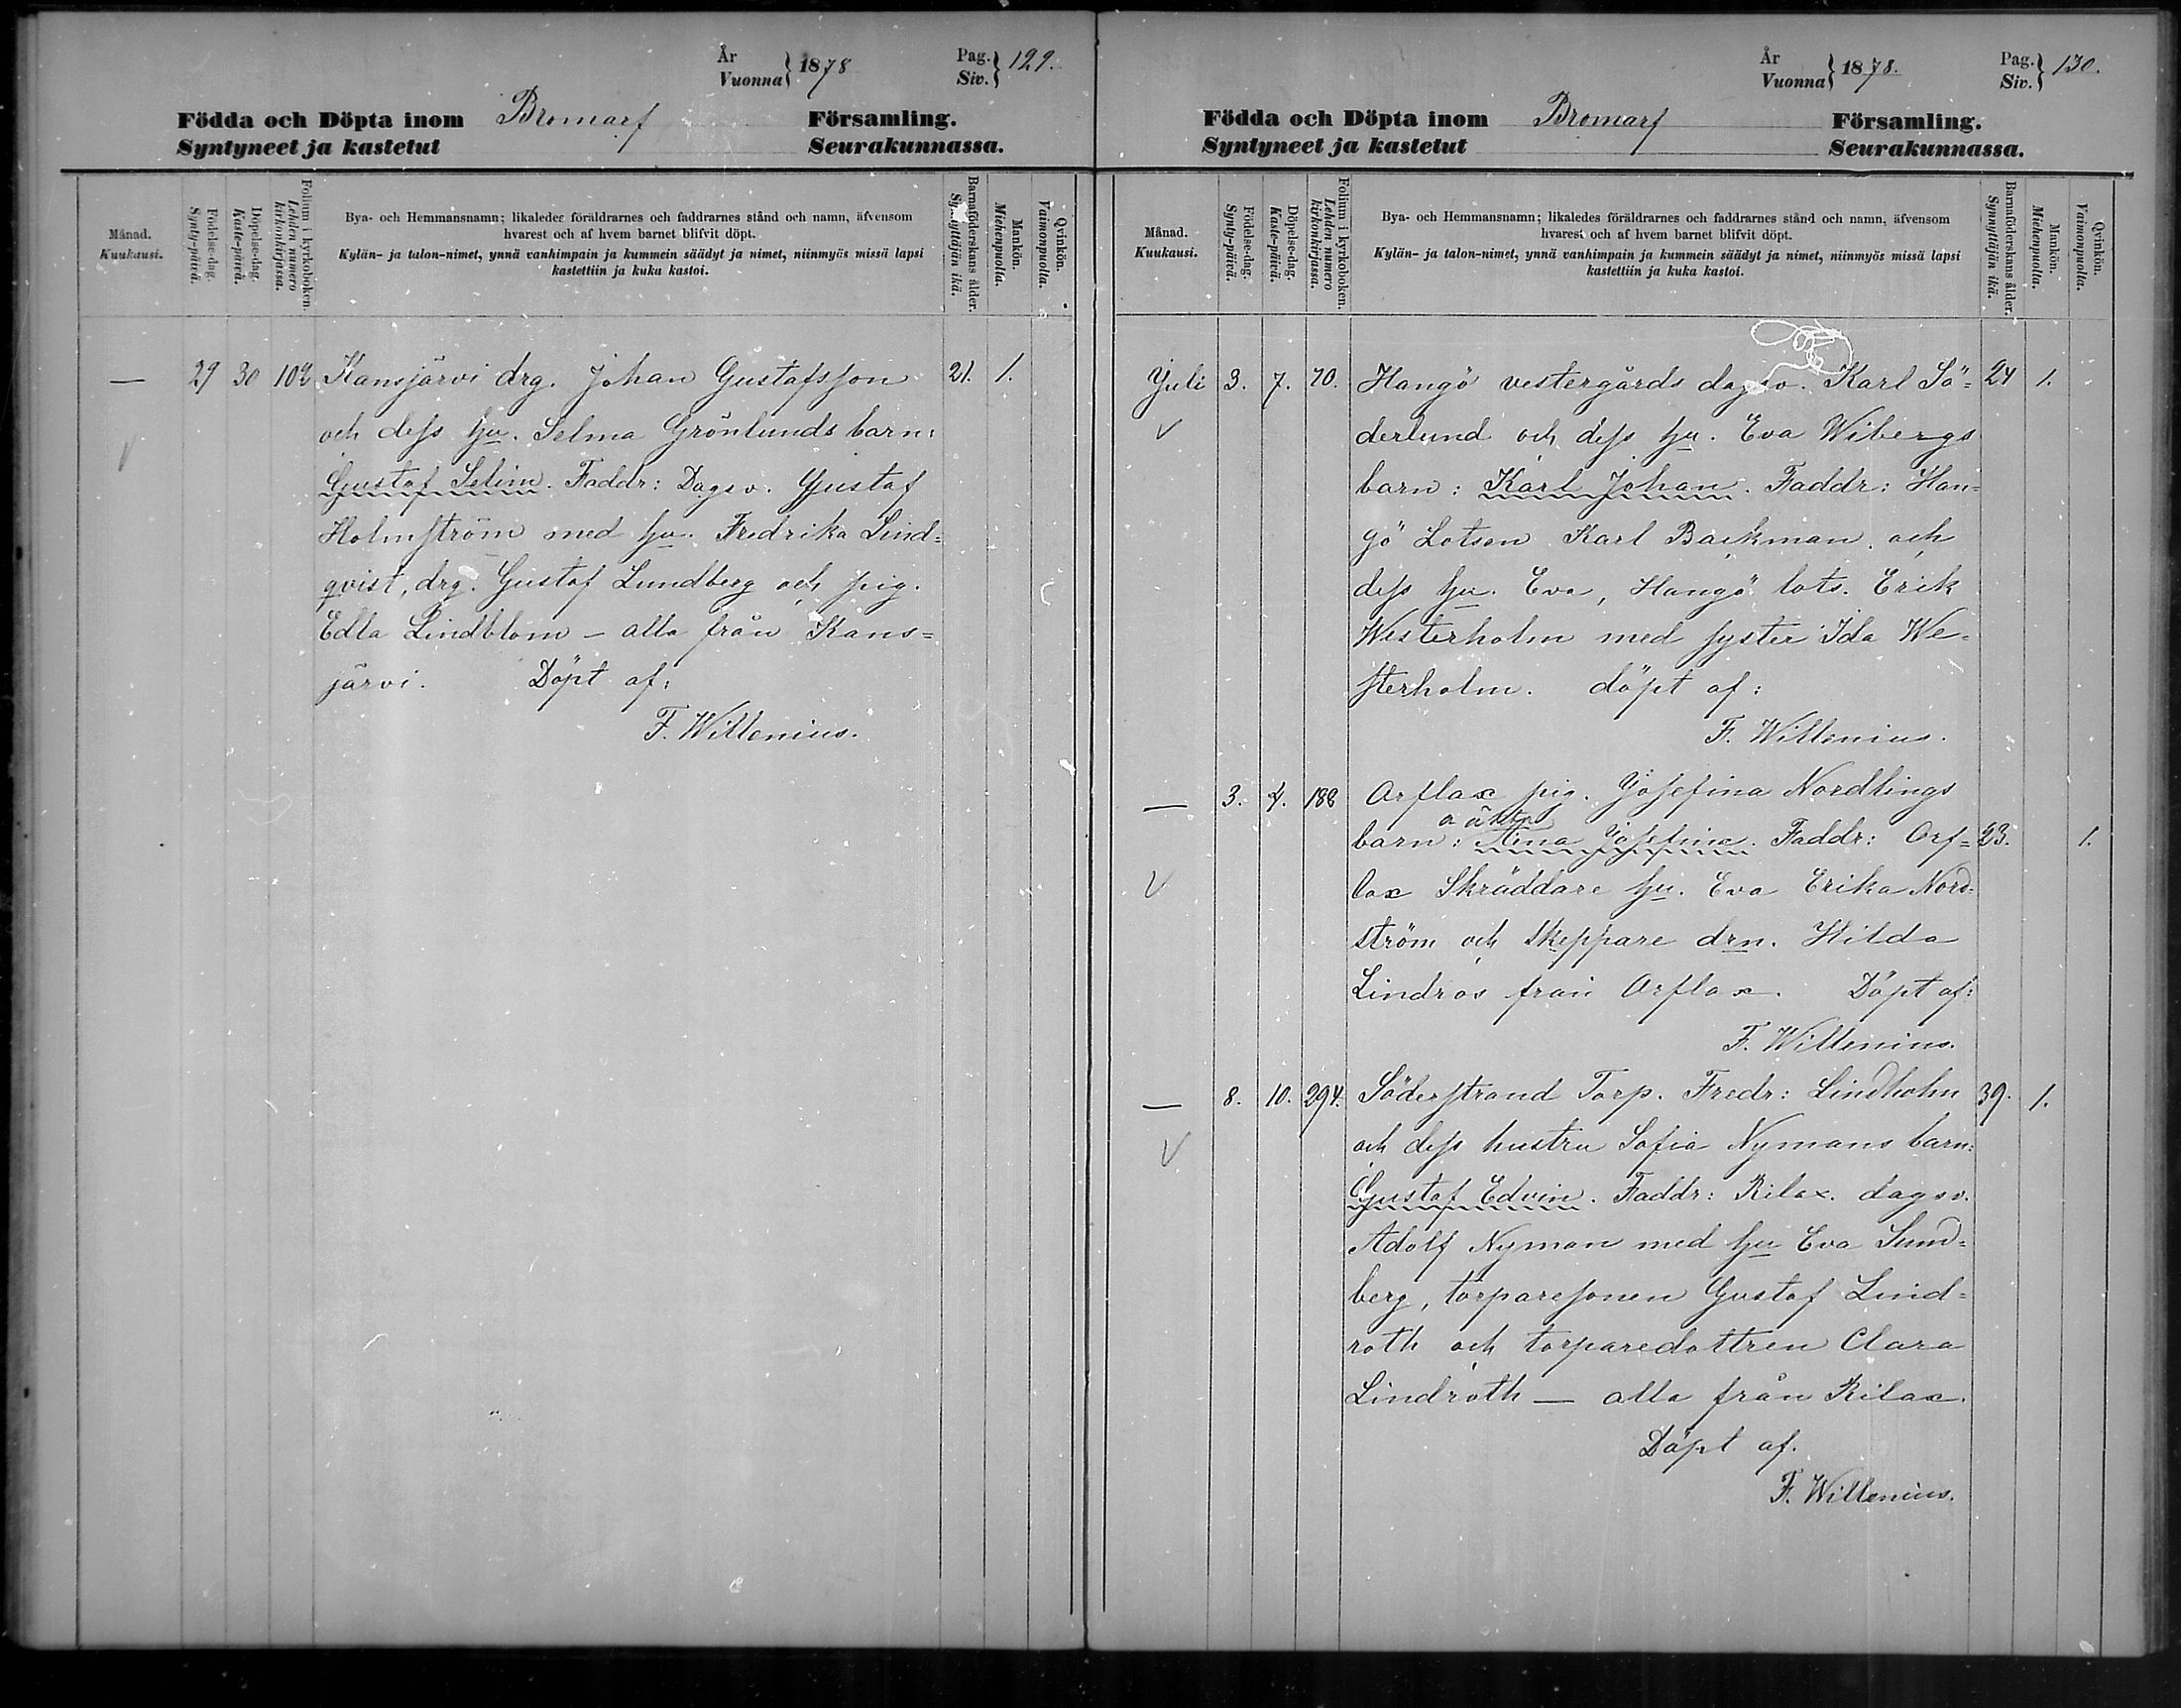 År
Vuonna } 1878
Pag.
Siv. } 129.
Födda och Döpta inom Bromarf Församling.
Syntyneet ja kastetut Seurakunnassa.
Månad.
Kuukausi.
Födelse-dag.
Synty-päivä.
Döpelse-dag.
Kaste-päivä.
Folium i kyrkoboken.
Lehden numero
kirkonkirjassa.
Bya- och Hemmansnamn; likaledes föräldrarnes och faddrarnes stånd och namn, äfvensom
hvarest och af hvem barnet blifvit döpt.
Kylän- ja talon-nimet, ynnä vanhimpain ja kummein säädyt ja nimet, niinmyös missä lapsi
kastettiin ja kuka kastoi.
Barnaföderskans ålder.
Synnyttäjän ikä.
Mankön.
Miehenpuolta.
Qvinkön.
Vaimonpuolta.
— 29 30 102 Kansjärvi drg. Johan Gustafsson 21. 1.
och dess hu. Selma Grönlunds barn:
Gustaf Selim. Faddr: Dagsv. Gustaf
Holmström med hu. Fredrika Lind=
qvist, drg. Gustaf Lundberg och pig.
Edla Lindblom — alla från Kans=
järvi. Döpt af:
F. Willenius.
År
Vuonna } 1878.
Pag.
Siv. } 130.
Födda och Döpta inom Bromarf Församling.
Syntyneet ja kastetut Seurakunnassa.
Månad.
Kuukausi.
Födelse-dag.
Synty-päivä.
Döpelse-dag.
Kaste-päivä.
Folium i kyrkoboken.
Lehden numero
kirkonkirjassa.
Bya- och Hemmansnamn; likaledes föräldrarnes och faddrarnes stånd och namn, äfvensom
hvarest och af hvem barnet blifvit döpt.
Kylän- ja talon-nimet, ynnä vanhimpain ja kummein säädyt ja nimet, niinmyös missä lapsi
kastettiin ja kuka kastoi.
Barnaföderskans ålder.
Synnyttäjän ikä.
Mankön.
Miehenpuolta.
Qvinkön.
Vaimonpuolta.
Juli 3. 7. 70. Hangö vestergårds dagsv. Karl Sö= 24 1.
derlund och dess hu. Eva Wibergs
barn: Karl Johan. Faddr: Han=
gö Lotsen Karl Backman och
dess hu. Eva, Hangö lots. Erik
Westerholm med syster Ida We=
sterholm. döpt af:
F. Willenius.
— 3. 4. 188 Orflax pig. Josefina Nordlings
oäkta
barn: Aina Josefina. Faddr: Orf= 23. 1.
lax Skräddare hu. Eva Erika Nord=
ström och Skeppare drn. Hilda
Lindros från Orflax. Döpt af:
F. Willenius.
— 8. 10. 294. Söderstrand Torp. Fredr: Lindholm 39. 1.
och dess hustru Sofia Nymans barn:
Gustaf Edvin. Faddr: Rilax. dagsv.
Adolf Nyman med hu Eva Sund=
berg, torparesonen Gustaf Lind=
roth och torparedottren Clara
Lindroth — alla från Rilax.
Döpt af.
F. Willenius.